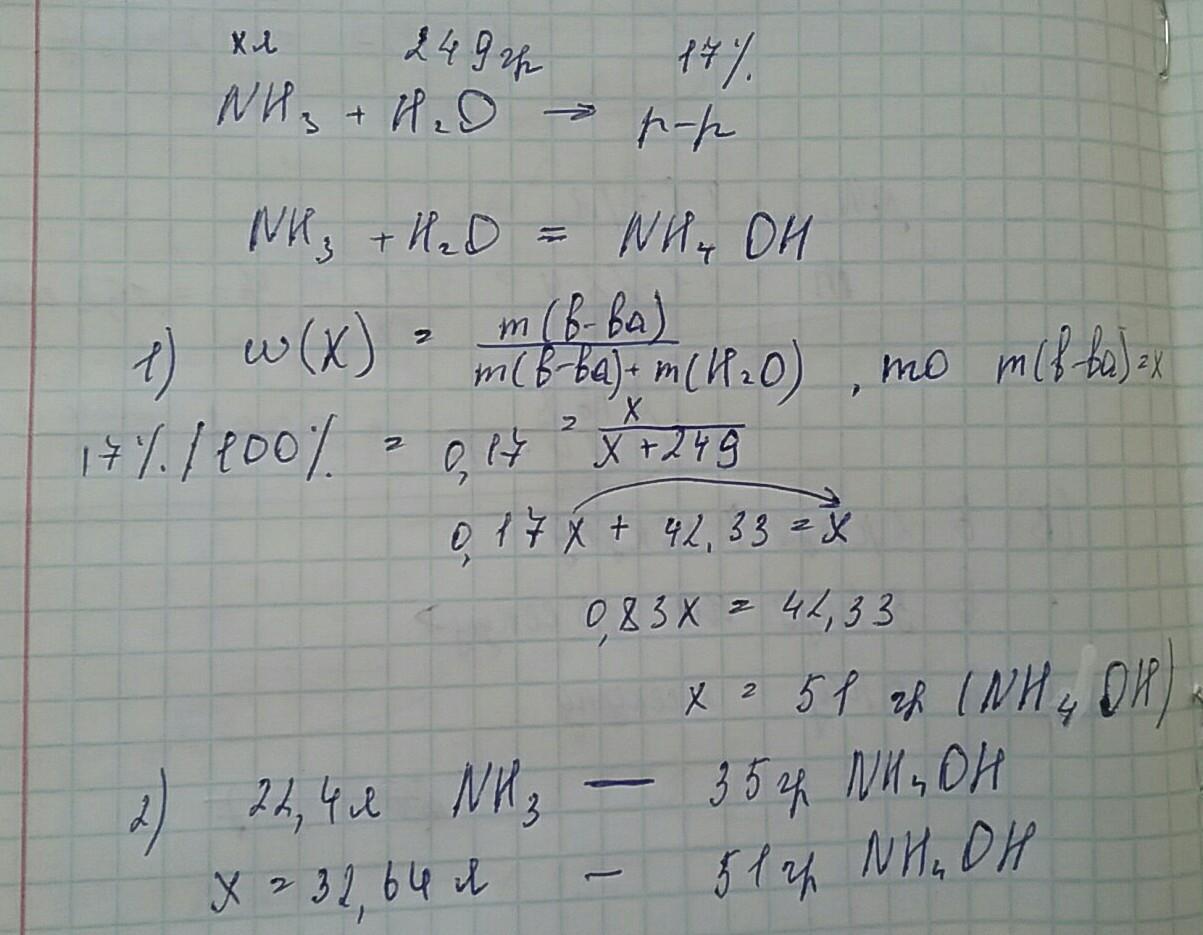 хл 249гр 17%
NH₃ + H₂O → р-р
NH₃ + H₂O = NH₄OH
1) ω(X) = m(в-ва) / m(в-ва) + m(H₂O), то m(в-ва)=x
17% / 100% = 0,17 = x / x + 249
0,17x + 42,33 = x
0,83x = 42,33
x = 51 гр (NH₄OH)
2) 22,4л NH₃ — 35гр NH₄OH
x = 32,64 л — 51гр NH₄OH